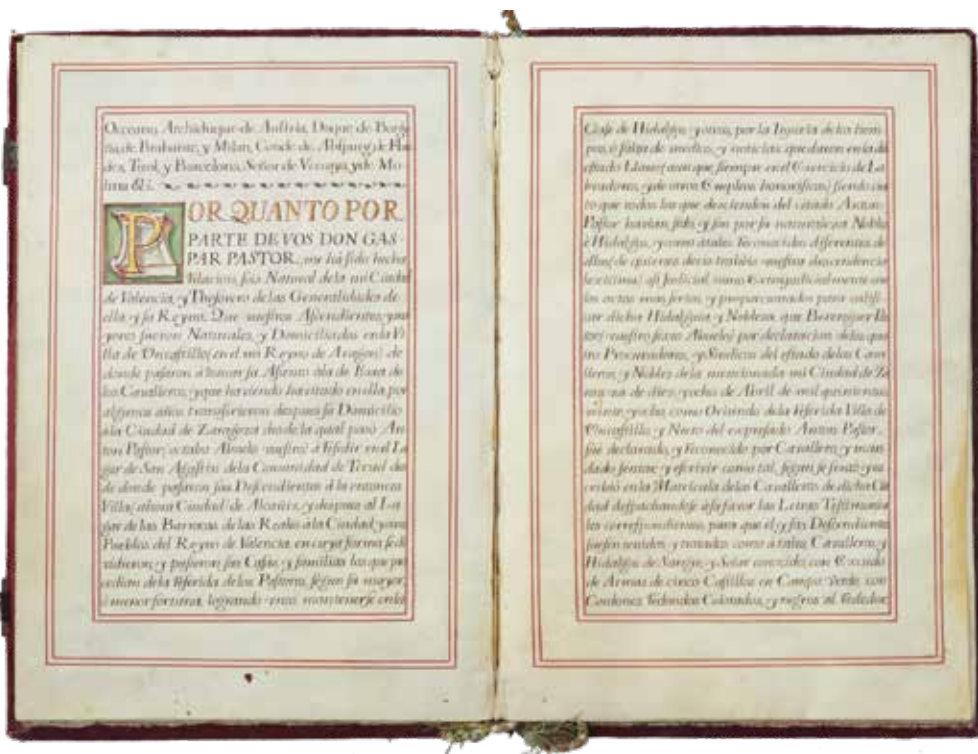 Occeano, Archiduque de Austria, Duque de Borgo
ña, de Brabante, y Milan, Conde de Abspurg, de Flan
des, Tirol, y Barcelona, Señor de Vizcaya, y de Mo
lina &c.
POR QUANTO POR
PARTE DE VOS DON GAS
PAR PASTOR, me há sido hecha
Relacion, sois Natural de la mi Ciudad
de Valencia, y Thesorero de las Generalidades de
ella, y su Reyno. Que vuestros Ascendientes, y ma
yores fueron Naturales, y Domiciliados en la Vi
lla de Uncastillo (en el mi Reyno de Aragon) de
donde pasaron á tomar su Asiento ála de Exea de
los Cavalleros, y que haviendo havitado en ella por
algunos años transfirieron despues su Domicilio
ála Ciudad de Zaragoza desde la qual pasó An
ton Pastor, octabo Abuelo vuestro á residir en el Lu
gar de San Agustin dela Comunidad de Teruel des
de donde pasaron sus Descendientes á la entonces
Villa (ahora Ciudad) de Alcañiz, y despues al Lu
gar de las Barracas, de las Reales ála Ciudad, y otros
Pueblos del Reyno de Valencia, en cuya forma se di
vidieron, y pusieron sus Casas, y familias los que pro
cedian dela referida delos Pastores, segun su mayor,
ó menor fortuna, logrando unos mantenerse en la
Clase de Hidalgos, y otros, por la Injuria de los tiem
pos, ó falta de medios, y noticias quedaron en la de
estado Llano, aun que siempre en el Exercicio de La
bradores, y de otros Empleos honorificos; siendo cier
to que todos los que descienden del citado Anton
Pastor havian sido, y son por su naturaleza Nobles
é Hidalgos, y como átales reconocidos differentes de
ellos, de quienes decis trahéis vuestra descendencia
lexitima; asi Judicial, como Extrajudicialmente con
los actos mas serios, y proporcionados para califi
car dicha Hidalguia, y Nobleza, que Berenguer Pas
tor, vuestro sexto Abuelo, por declaracion de los qua
tro Procuradores, y Sindicos del estado de los Cava
lleros, y Nobles de la mencionada mi Ciudad de Za
ragoza de diez, y ocho de Abril de mil quinientos
veinte, y ocho, como Oriundo dela referida Villa de
Uncastillo, y Nieto del expresado Anton Pastor,
fue declarado, y reconocido por Cavallero, y man
dado sentar, y escrivir como tal, segun se sentó, y es
crivió en la Matricula delos Cavalleros de dicha Ciu
dad despachandose á su favor las Letras Testimonia
les correspondientes, para que él, y sus Descendientes
fuesen tenidos, y tratados como á tales, Cavalleros, y
Hidalgos de Sangre, y Solar conocido, con Escudo
de Armas de cinco Castillos en Campo Verde, con
Cordones redondos Colorados, y negros al rededor